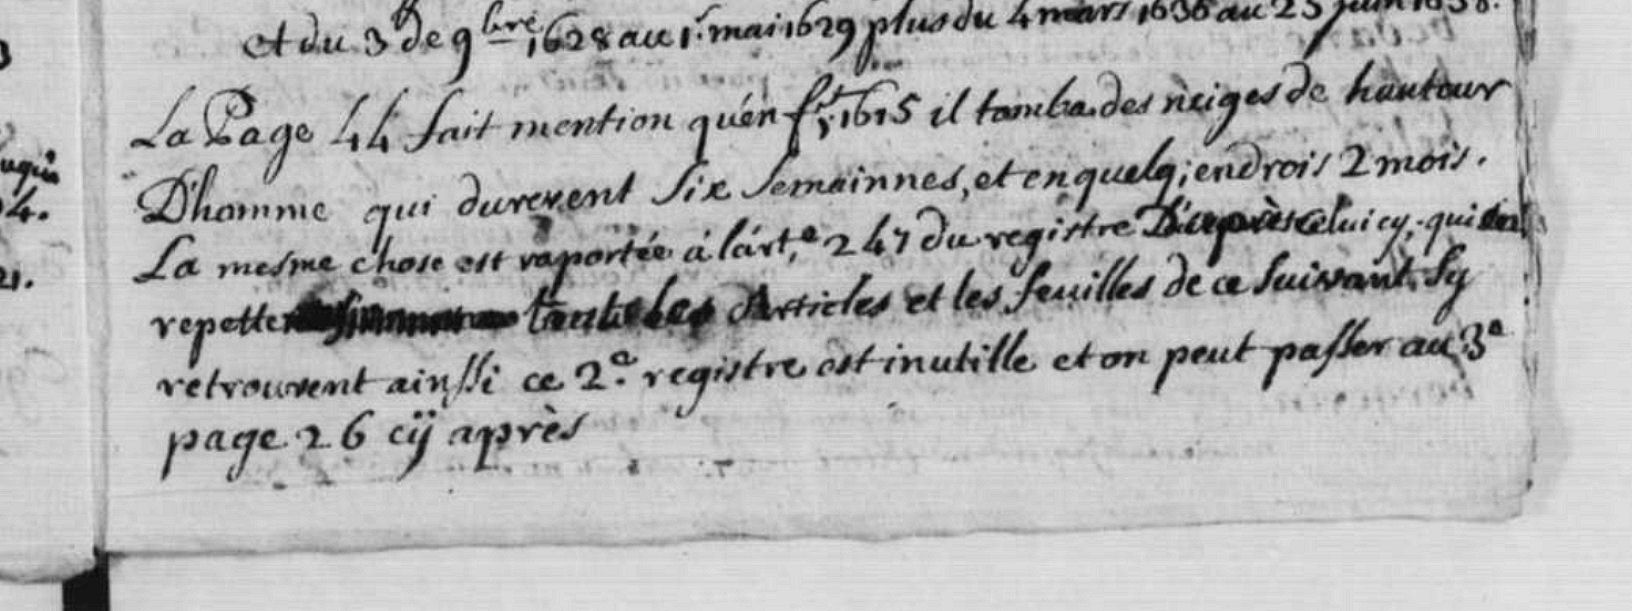 et du 3e de 9bre 1628 au 1r mai 1629 plus du 4 mars 1636 au 25 juin 1638.
La Page 44 fait mention qu'én fr 1615 il tomba des neiges de hauteur
D'homme qui durerent six semainnes, et en quelq; endrois 2 mois.
La mesme chose est raportée á l'árt,e 247 du registre D'après celui cy, qui
repette tout les Articles et les feuilles de ce suivant, sy
retrouvent ainssi ce 2.e registre est inutille et on peut passer au 3e
page 26 cÿ après
4.
21.